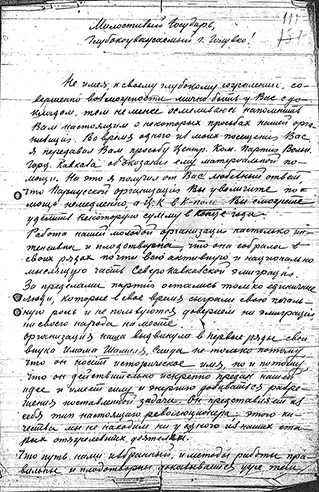 111
Милостивый Государь,
Глубокоуважаемый г. Голувко.
Не имея, к своему глубокому сожалению, со-
вершенно возможности лично быть у Вас с до-
кладом, тем не менее осмеливаюсь напомнить
Вам настоящим о некоторых просьбах нашей орга-
низации. Во время одного из моих посещений Вас
я передавал Вам просьбу Центр. Ком. Партии Вольн.
Горц. Кавказа об оказании ему материальной по-
мощи. На это я получил от Вас любезный ответ
что Парижской организации Вы увеличите по-
мощь немедленно, а Ц.К. в К-поле Вы сможете
уделить некоторую сумму в конце года.
Работа нашей молодой организации настолько ин-
тенсивна и плодотворна, что она собрала в
своих рядах почти всю активную и национально
мыслящую часть Северо Кавказской эмиграции.
За пределами партии остались только единичные
люди, которые в свое время сыграли свою печаль-
ную роль и не пользуются доверием ни эмиграции
ни своего народа на месте.
Организация наша выдвинула в первые ряды свои
внука Имама Шамиля, Саида не только потому
что он носит историческое имя, но и потому,
что он действительно искренно предан нашей
идее и имеет силу и энергию добиваться разре-
шения поставленной задачи. Он представляет из
себя тип настоящего революционера, этого ка-
чества мы не находим ни у одного из наших ста-
рых отдуревших деятелей.
Что путь нами избранный, и методы работы пра-
вильны и плодотворны доказывается уже тем,